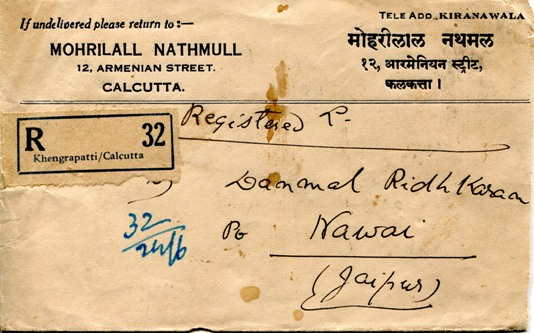 If undelivered please return to:—
MOHRILALL NATHMULL
12, ARMENIAN STREET.
CALCUTTA.
TELE ADD. KIRANAWALA
मोहरीलाल नथमल
१२, आरमेनियन स्ट्रीट,
कलकत्ता ।
Registered
R 32
Khengrapatti/Calcutta
Danmal Ridhkaran
Po Nawai
(Jaipur)
32
24/6